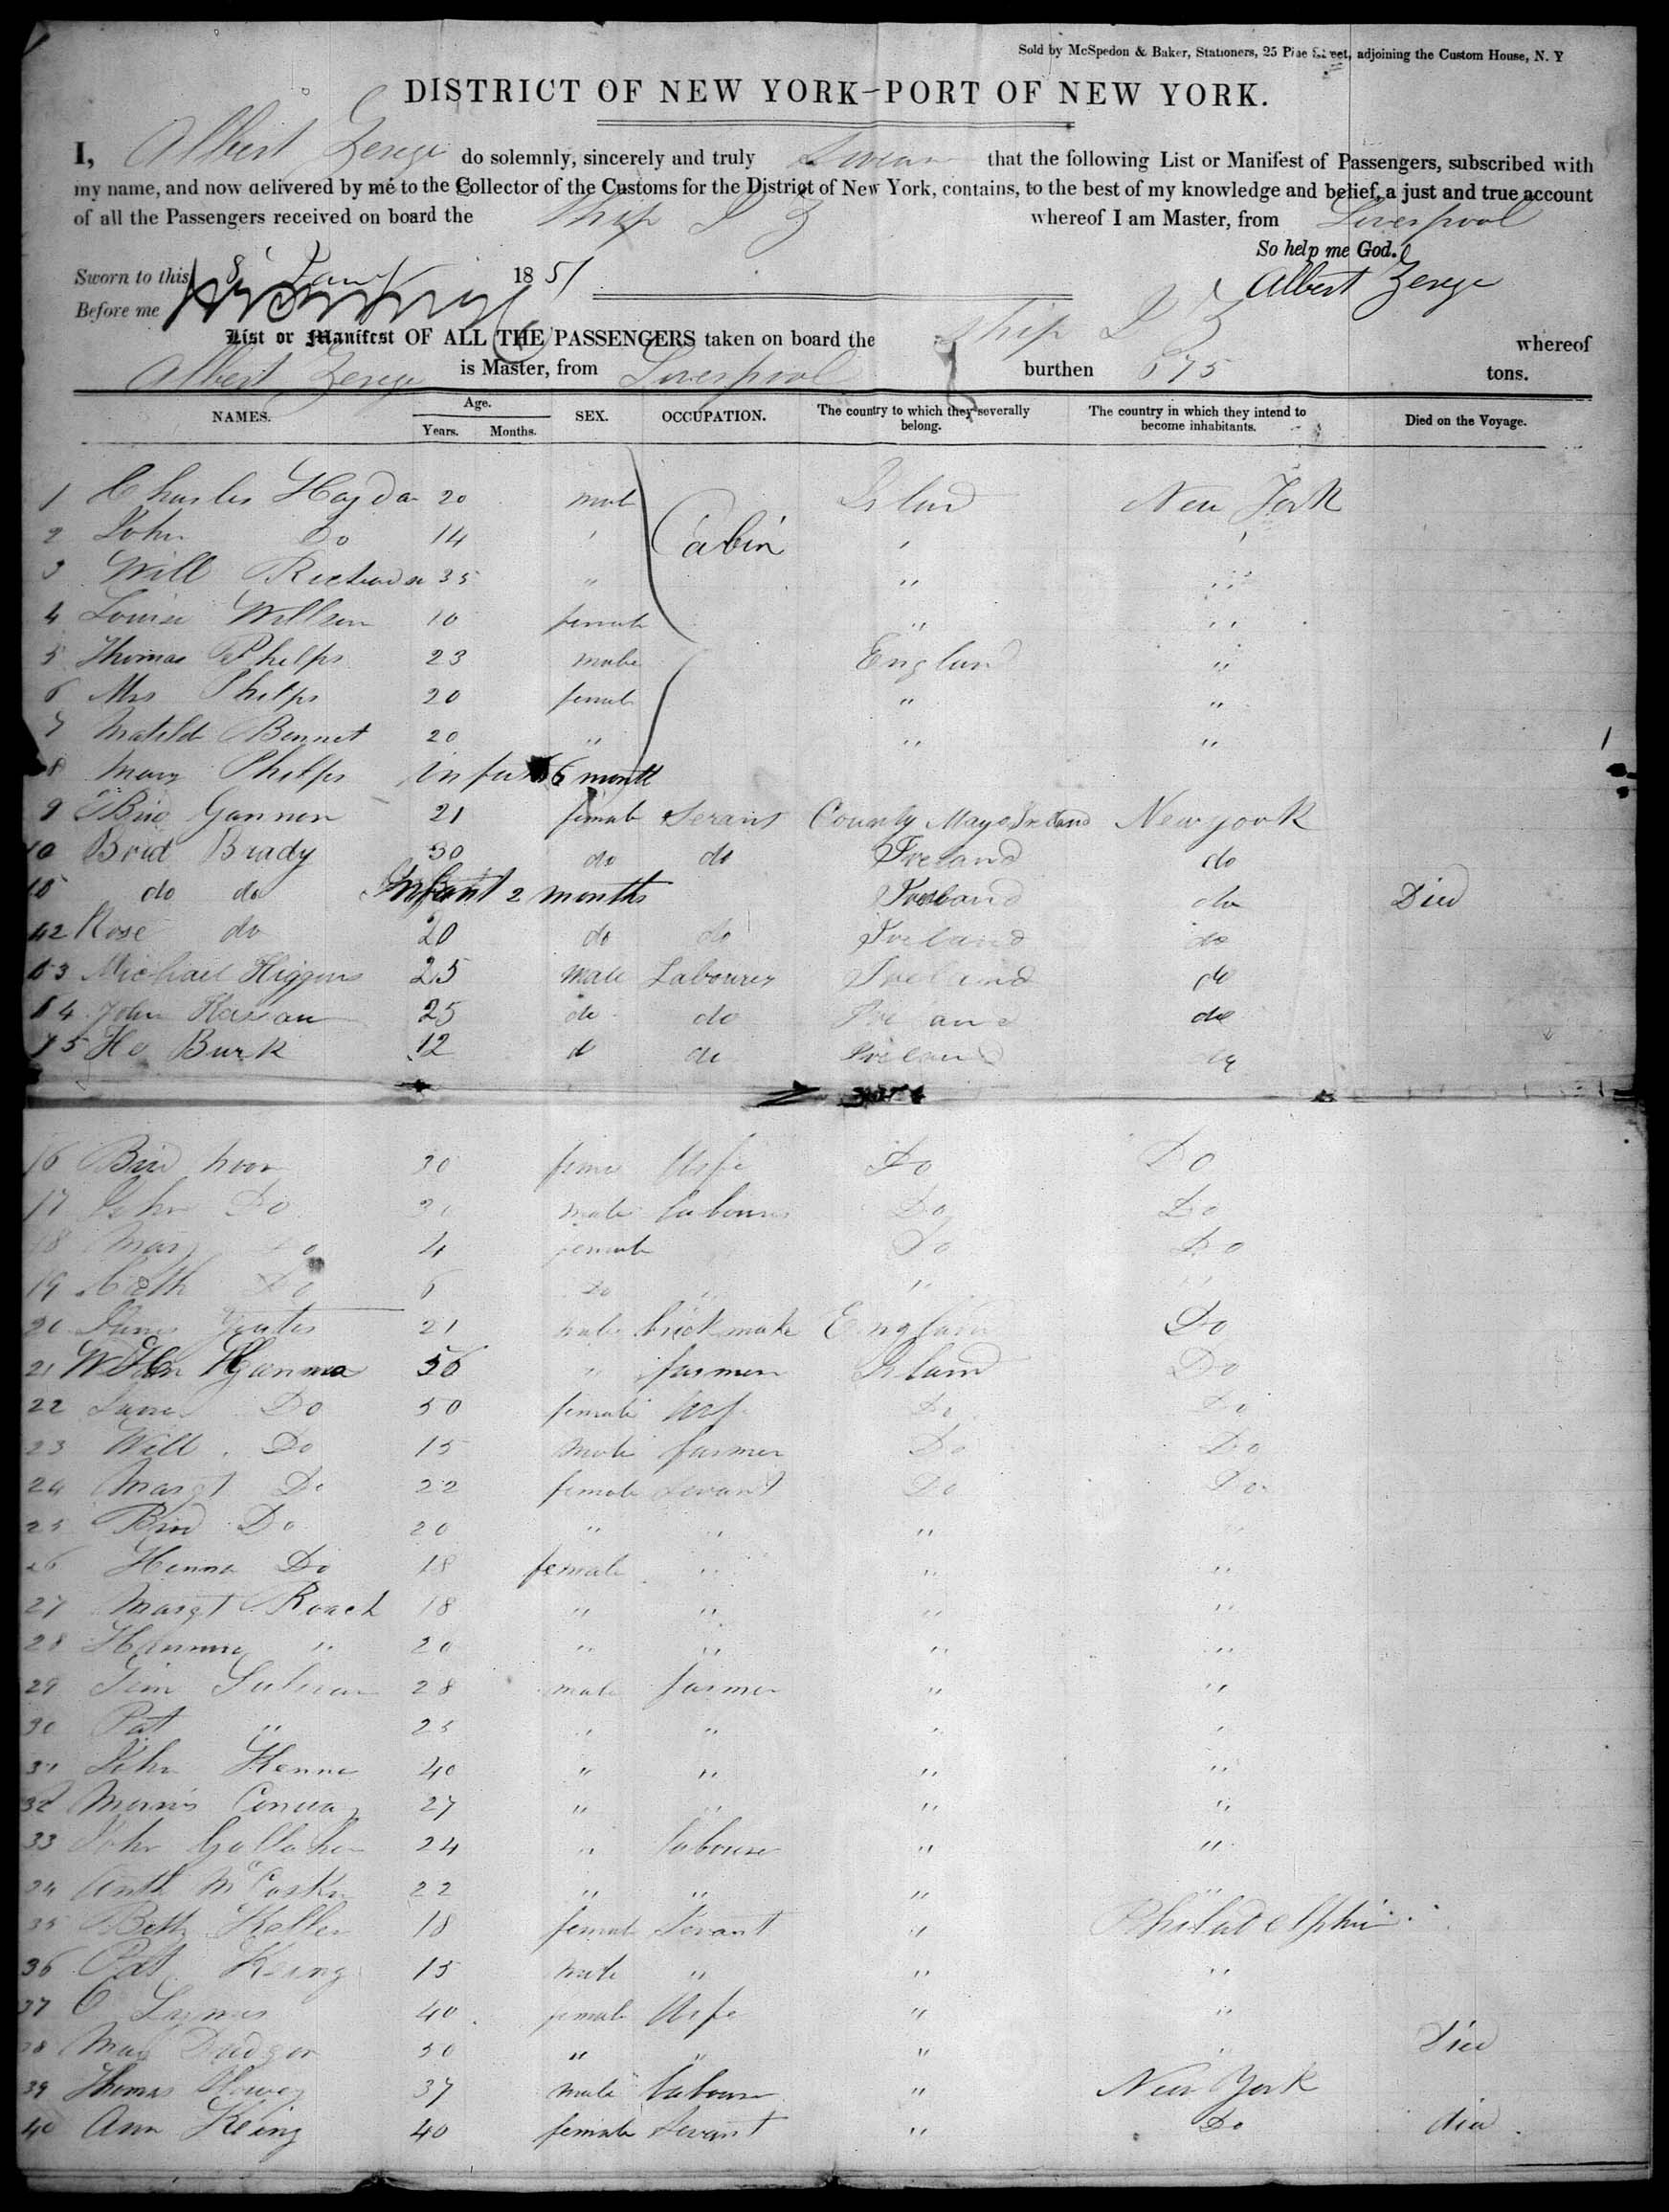 Sold by McSpedon & Baker, Stationers, 25 Pine Street, adjoining the Custom House, N. Y
DISTRICT OF NEW YORK—PORT OF NEW YORK.
I, Albert Zerega do solemnly, sincerely and truly swear that the following List or Manifest of Passengers, subscribed with
my name, and now delivered by me to the Collector of the Customs for the District of New York, contains, to the best of my knowledge and belief, a just and true account
of all the Passengers received on board the Ship I Z whereof I am Master, from Liverpool
So help me God.
Sworn to this 8 Jany 1851 Albert Zerega
Before me
List or Manifest OF ALL THE PASSENGERS taken on board the Ship I Z whereof
Albert Zerega is Master, from Liverpool burthen 675 tons.
NAMES. Age. Years. Months. SEX. OCCUPATION. The country to which they severally belong. The country in which they intend to become inhabitants. Died on the Voyage.
1 Charles 20 male Cabin New York
2 John Do 14 "
3 Will 35 " " "
4 Louisa Willson 10 female " "
5 Thomas Phelps 23 male England "
6 Mrs Phelps 20 female " "
7 Matild Bennet 20 " " "
8 Mary Phelps infant 6 month
9 Brid Gannon 21 female Serant County Mayo Ireland New york
10 Brid Brady 30 do do Ireland do
do do Infant 2 months Ireland do Died
12 Rose do 20 do do Ireland do
13 Michael Higgins 25 male Labourer Ireland do
14 John 25 do do Ireland do
15 Ho Burk 12 d do Ireland do
16 Brid 30 Wife Do Do
17 John Do male labourer Do Do
18 Mary Do 4 female Do Do
19 Cath Do 6 Do " "
20 Yeates 21 male brick make England Do
21 56 " farmer Do
22 Jane Do 50 female Wife Do Do
23 Will. Do 15 male farmer Do Do
24 Margt Do 22 female Servant Do Do
25 Brid Do 20 " " "
26 Henna Do 18 female " " "
27 Margt Roach 18 " " " "
28 " 20 " " " "
29 Tim 28 male farmer " "
30 Pat " 25 " " " "
31 John 40 " " " "
32 Morris 27 " " " "
33 John 24 " labourer " "
34 Anth 22 " " " "
35 18 female Servant " Philadelphia
36 Pat Keing 15 male " " "
37 C 40 female Wife " "
38 50 " " " " Died
39 Thomas 37 male labour " New York
40 Ann Keing 40 female Servant " Do died